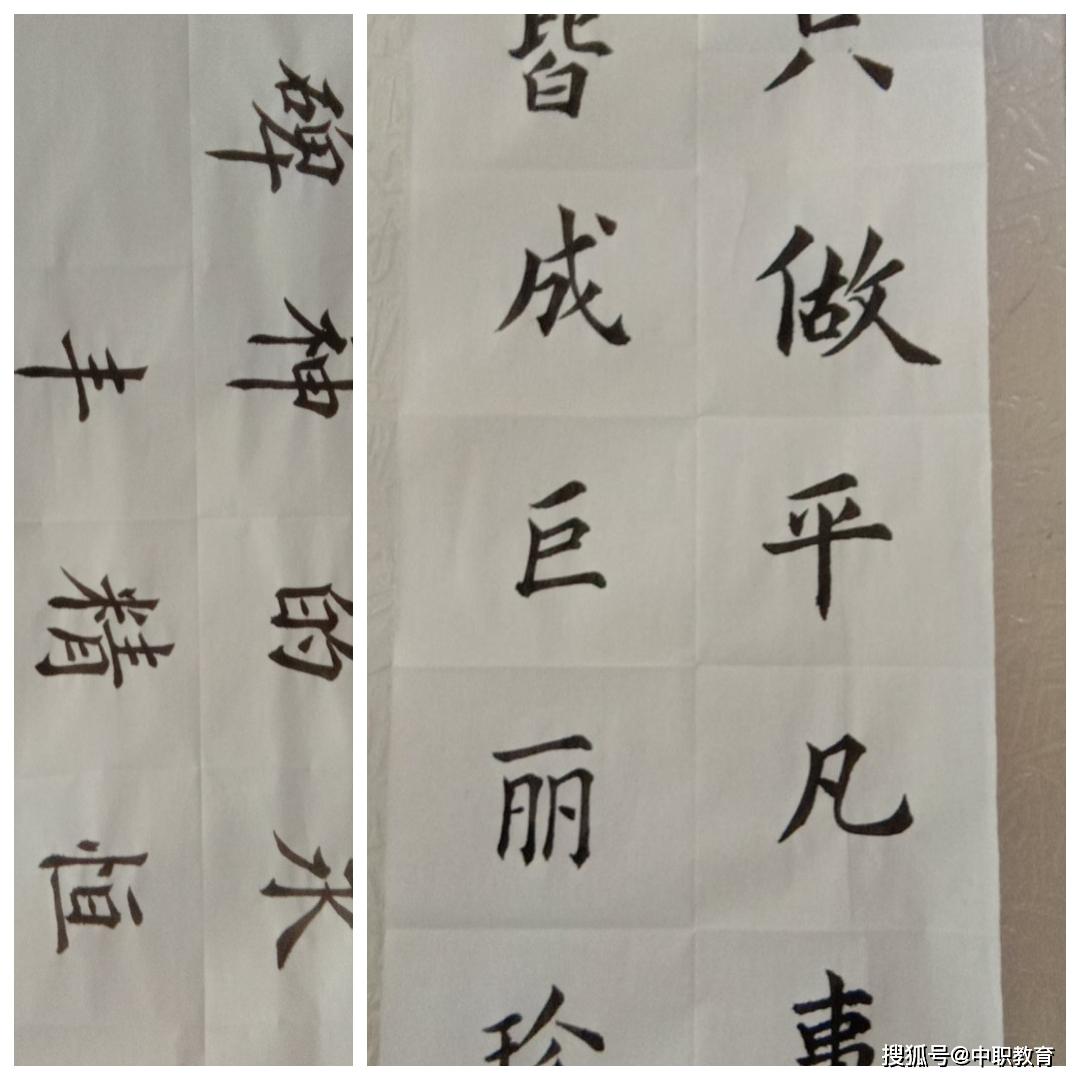 永恒
的精
神丰
碑
只做平凡事
皆成巨丽珍
搜狐号@中职教育